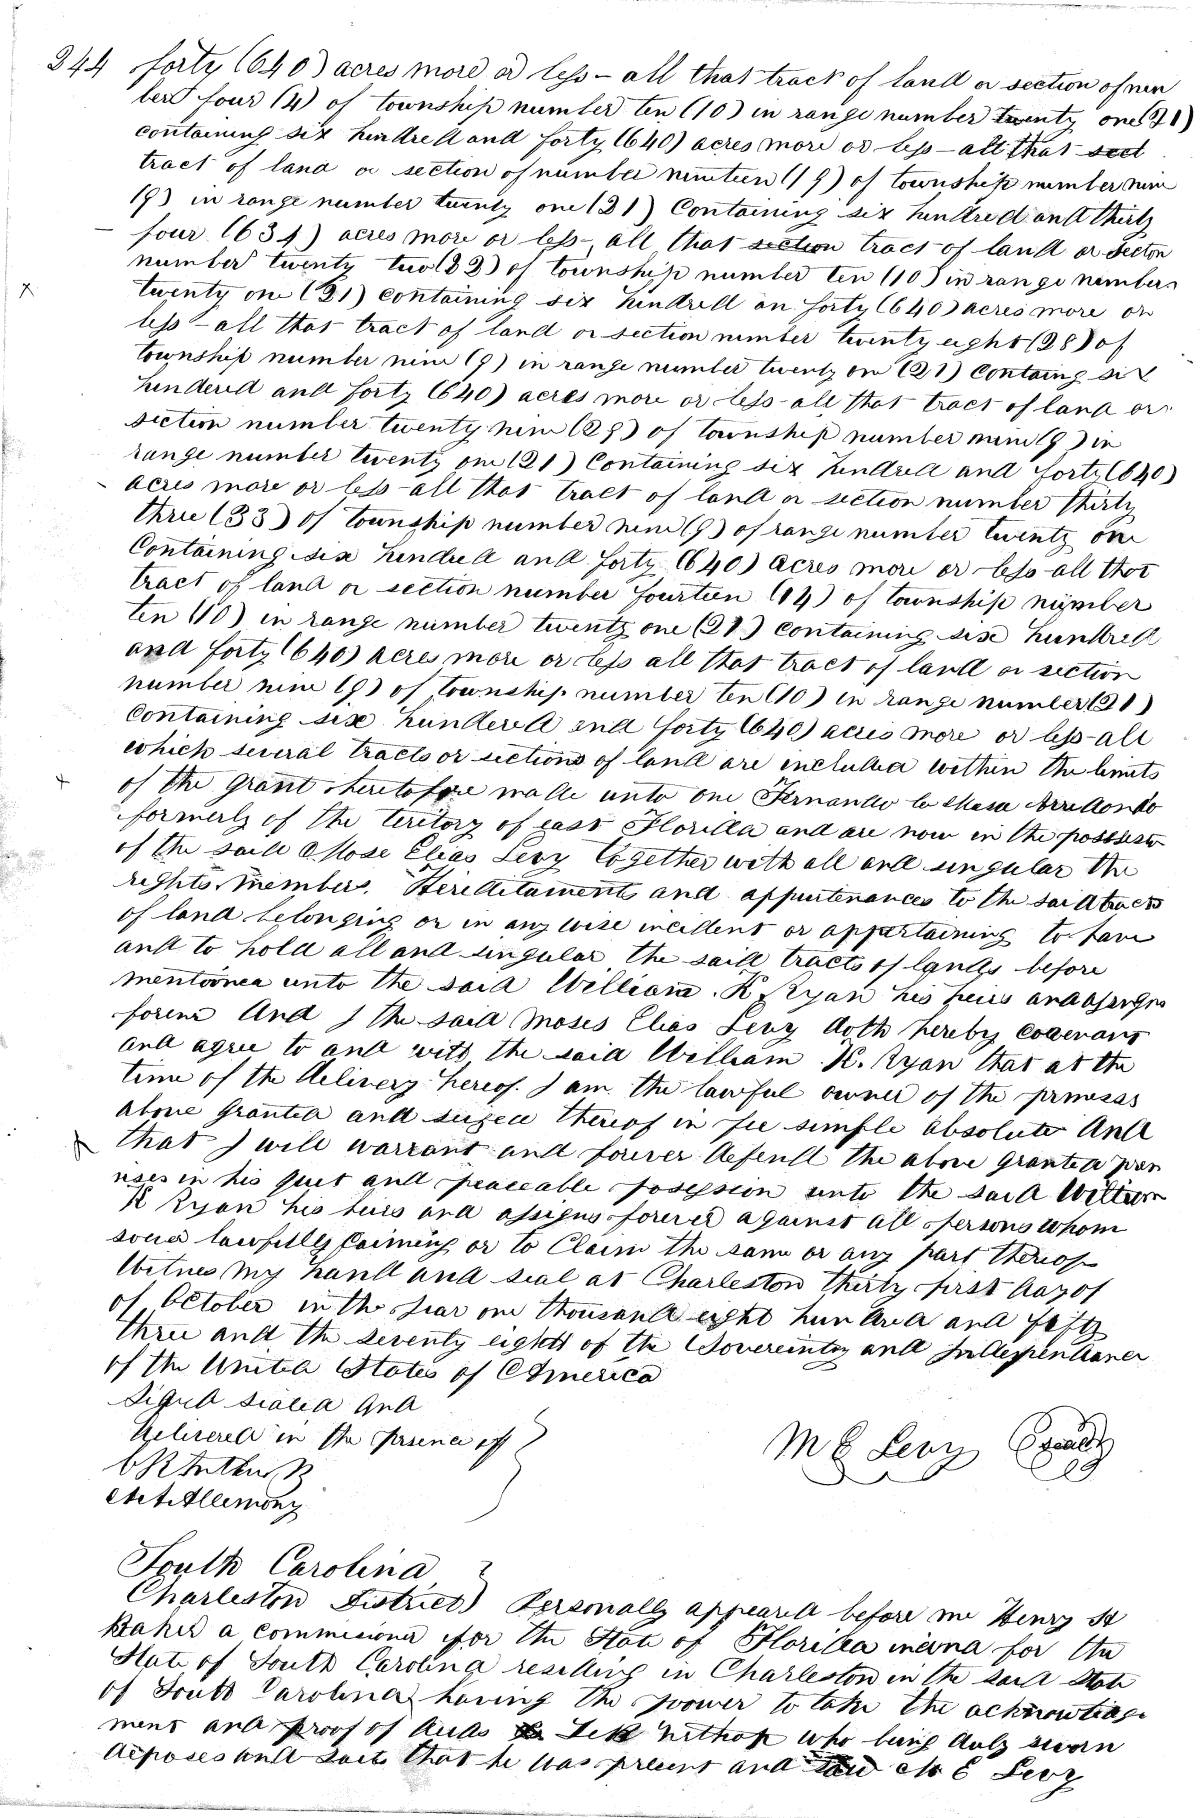 244 forty (640) acres more or less - all that tract of land or section of num
ber four (4) of township number ten (10) in range number twenty one (21)
containing six hundred and forty (640) acres more or less - all that sect
tract of land or section of number nineteen (19) of township number nine
(9) in range number twenty one (21) Containing six hundred and thirty
four (634) acres more or less, all that section tract of land or section
number twenty two (22) of township number ten (10) in range number
twenty one (21) containing six hundred an forty (640) acres more or
less - all that tract of land or section number twenty eight (28) of
township number nine (9) in range number twenty one (21) Containg six
hundered and forty (640) acres more or less all that tract of land or
section number twenty nine (29) of township number nine (9) in
range number twenty one (21) Containing six hundred and forty (640)
acres more or less all that tract of land or section number thirty
three (33) of township number nine (9) of range number twenty one
Containing six hundred and forty (640) acres more or less all that
tract of land or section number fourteen (14) of township number
ten (10) in range number twenty one (21) containing six hundred
and forty (640) acres more or less all that tract of land or section
number nine (9) of township number ten (10) in range number (21)
Containing six hundered and forty (640) acres more or less - all
which several tracts or sections of land are included within the limits
of the grant heretofore made unto one Fernando de la Maza Arredondo
formerly of the teritory of east Florida and are now in the possession
of the said Mose Elias Levy together with all and singular the
rights. members. Hereditaments and appurtenances to the said tracts
of land belonging or in any wise incident or appertaining to have
and to hold all and singular the said tracts of lands before
mentioned unto the said William. K. Ryan his heirs and assigns
forever And I the said Moses Elias Levy doth hereby covenant
and agree to and with the said William K. Ryan that at the
time of the delivery hereof. I am the lawful owner of the premises
above granted and seized thereof in fee simple absolute And
that I will warrant and forever defend the above granted prem
ises in his quiet and peaceable possession unto the said William
K Ryan his heirs and assigns forever against all persons whom
soever lawfully claiming or to Claim the same or any part thereof
Witness my hand and seal at Charleston thirty first day of
of October in the year one thousand eight hundred and fifty
three and the seventy eighth of the Sovereinty and Independence
of the United States of America
Signed sealed and
delivered in the presence off
M E Levy Seal
South Carolina
Charleston District Personally appeared before me Henry
Baker a commisioner for the State of Florida in and for the
State of South Carolina residing in Charleston in the said State
of South Carolina having the power to take the acknowledge
ment and proof of deeds who being duly sworn
deposes and saith that he was present and saw M E Levy